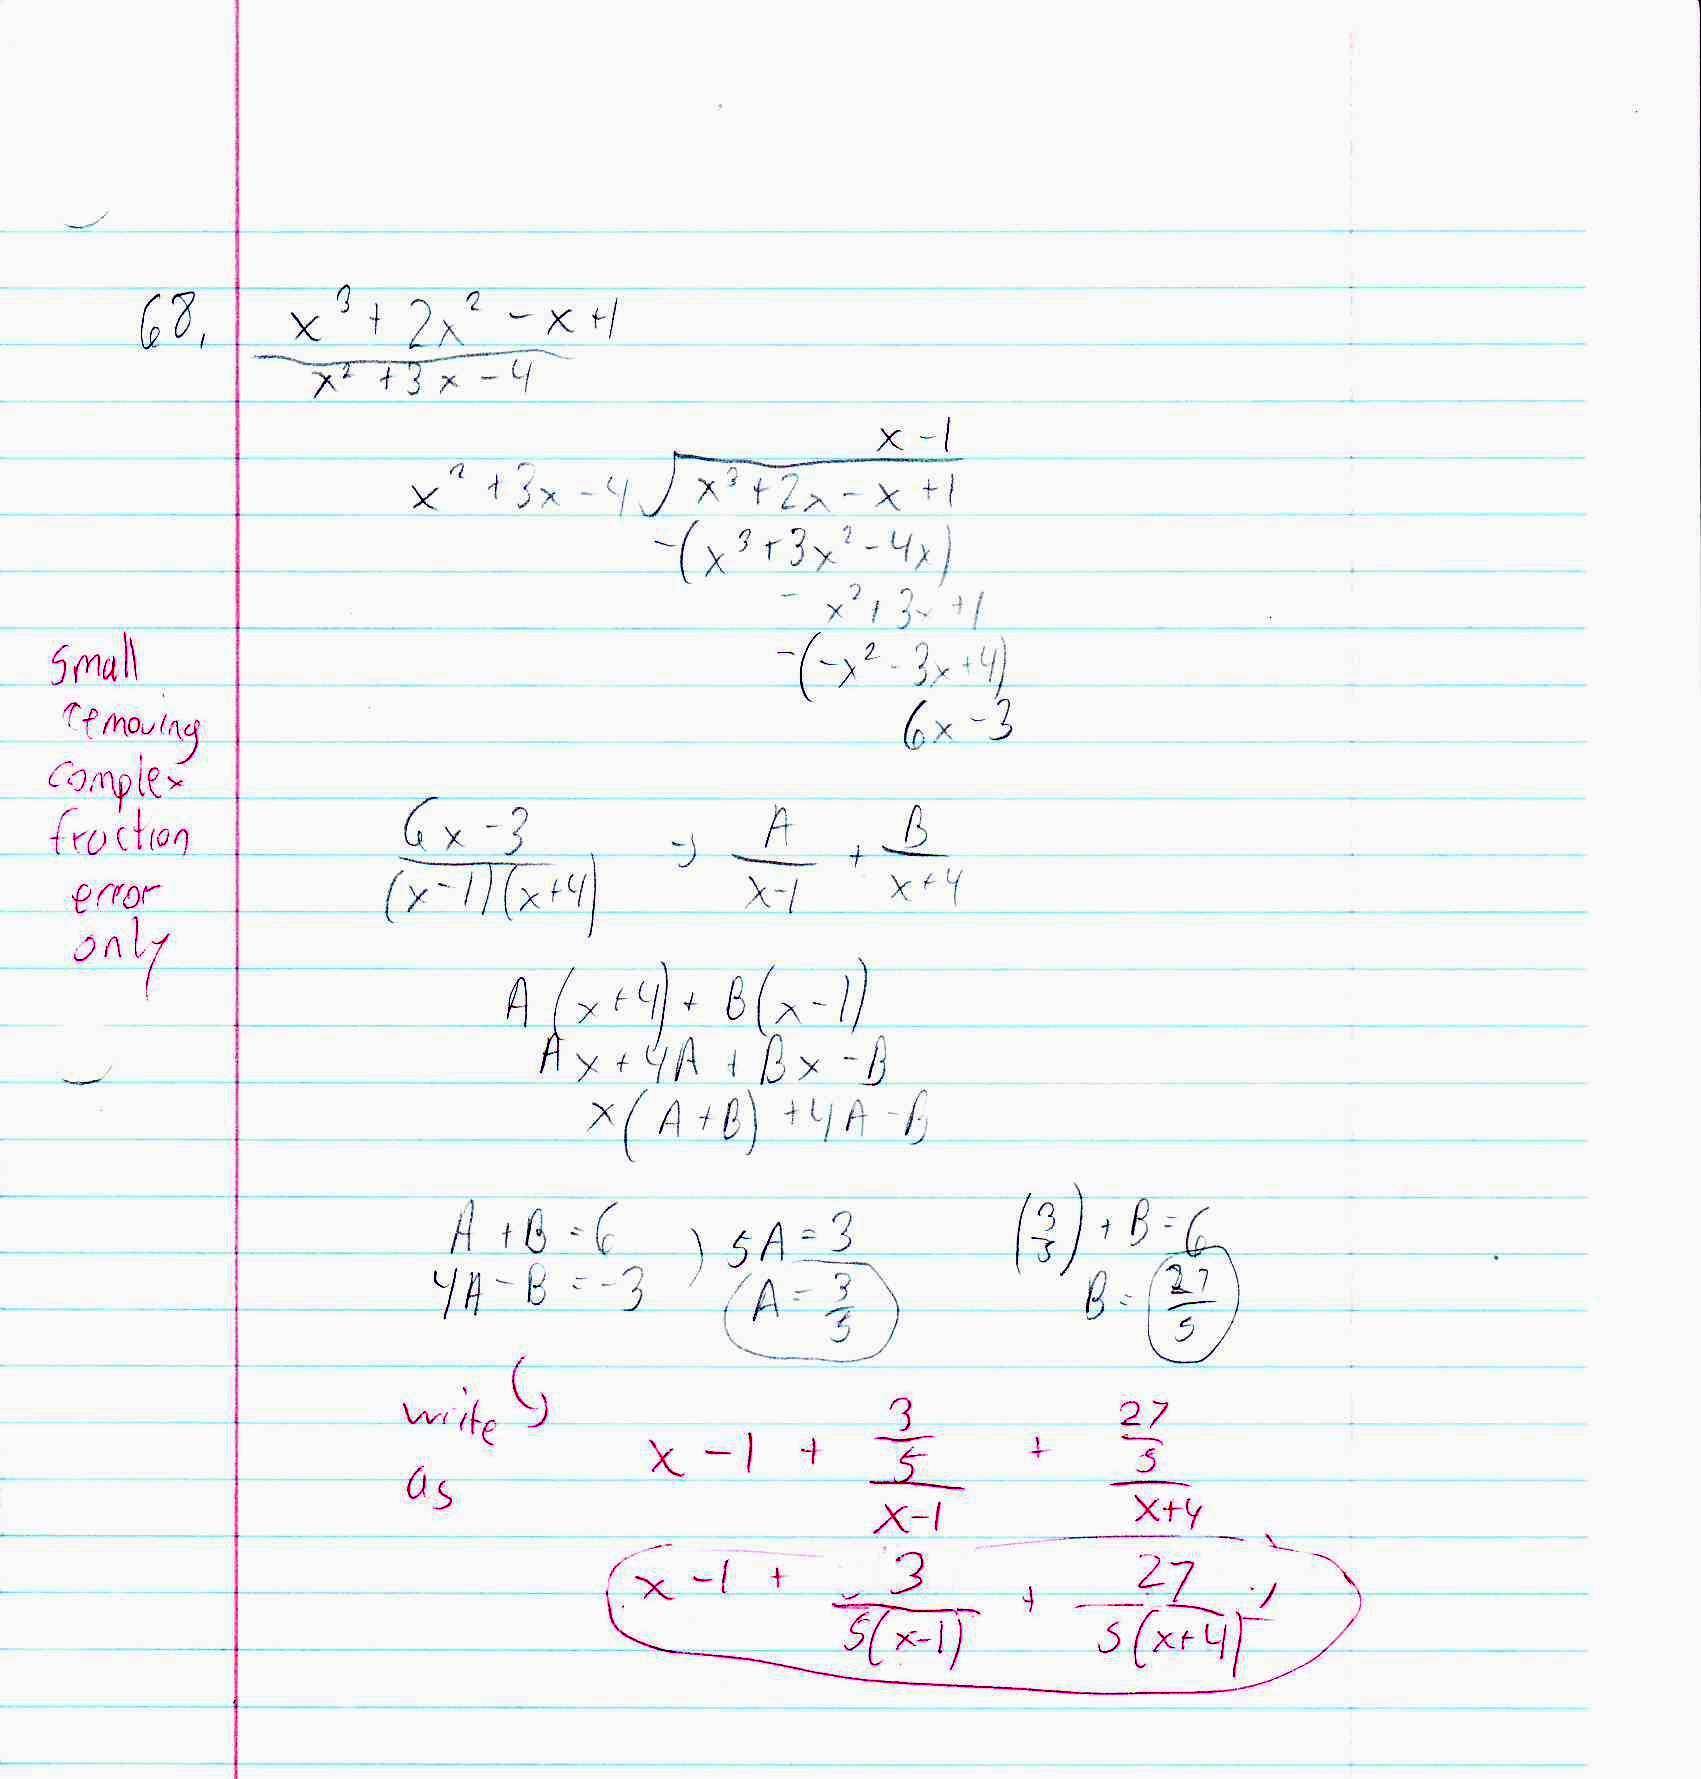 68. x³ + 2x² - x + 1
x² + 3x - 4
x - 1
x² + 3x - 4 √ x³ + 2x - x + 1
-(x³ + 3x² - 4x)
- x² + 3x + 1
-(-x² - 3x + 4)
6x - 3
Small
removing
complex
fraction
error
only
6x - 3 / (x-1)(x+4) → A / x-1 + B / x+4
A(x+4) + B(x-1)
Ax + 4A + Bx - B
x(A+B) + 4A - B
A + B = 6 ) 5A = 3 (3/5) + B = 6
4A - B = -3 A = 3/5 B = 27/5
write as
x - 1 + 3/5 / x-1 + 27/5 / x+4
x - 1 + 3 / 5(x-1) + 27 / 5(x+4)